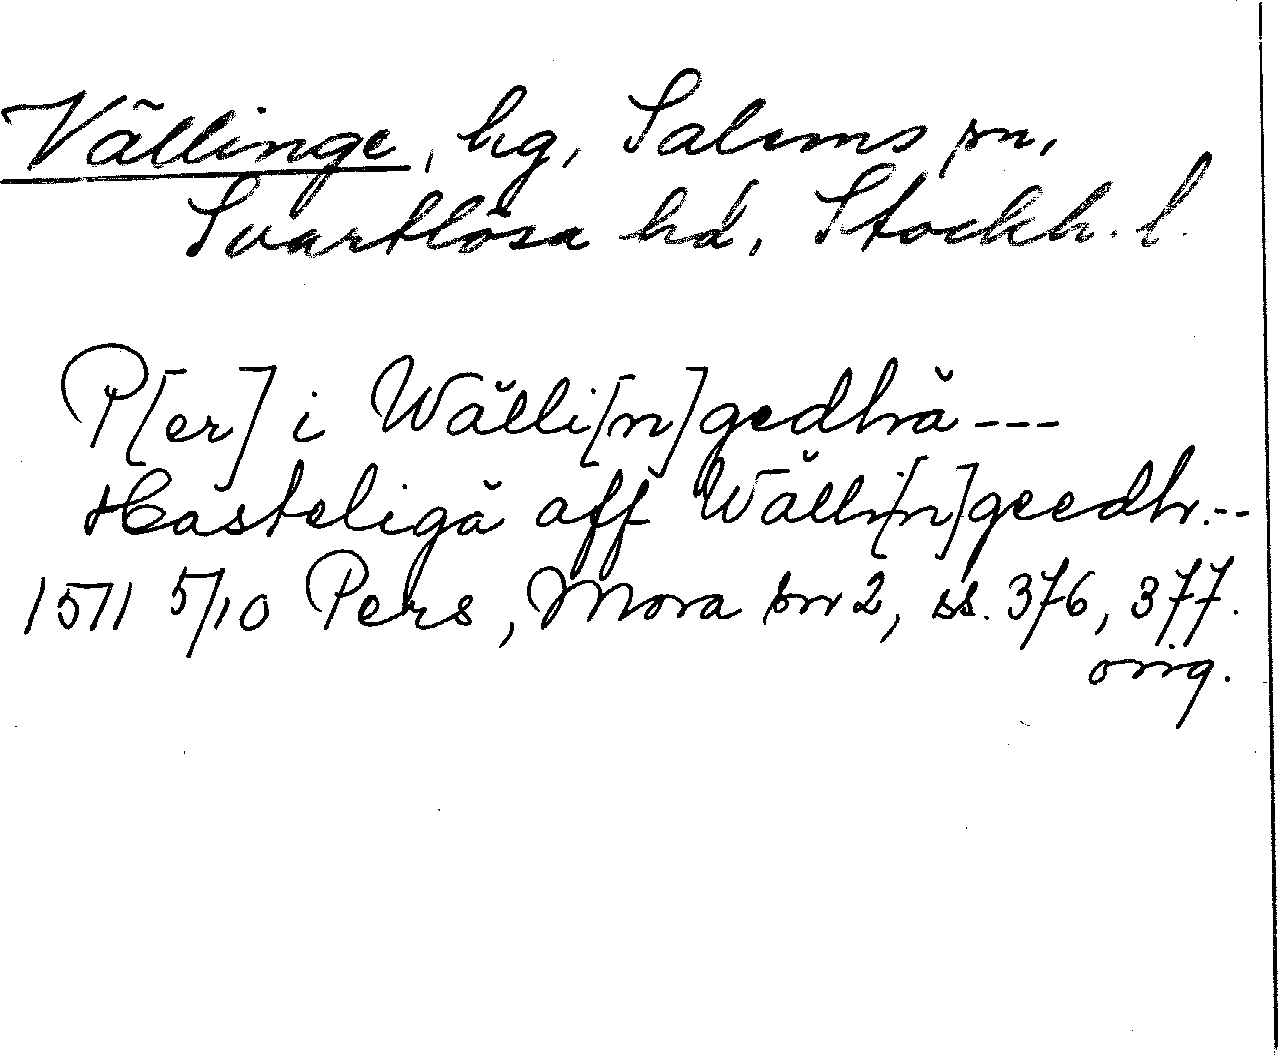 Vällinge, hg, Salems sn,
Svartlösa hd, Stockh. l.
P[er] i Wälli[n]gedhä ---
Hasteligä aff Wälli[n]geedh.--
1511 5/10 Pers, Mora br 2, ss. 376, 377.
orig.